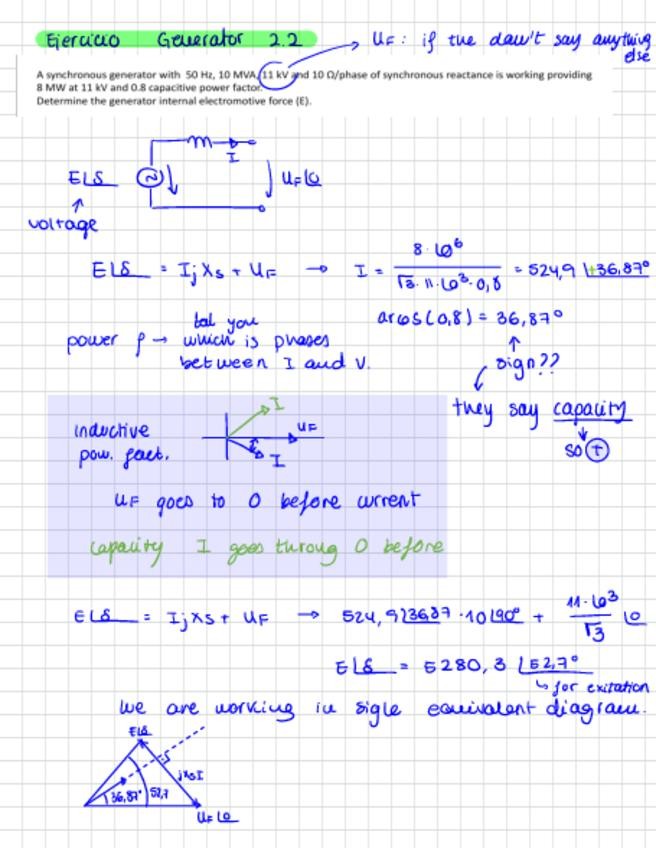 Ejercicio Generator 2.2
UF: if the dawn't say anything
else
A synchronous generator with 50 Hz, 10 MVA, 11 kV and 10 Ω/phase of synchronous reactance is working providing
8 MW at 11 kV and 0.8 capacitive power factor.
Determine the generator internal electromotive force (E).
I
E∠δ
UF∠0
voltage
E∠δ = I j Xs + UF → I = 8·10⁶ / √3·11·10³·0,8 = 524,9 ∠+36,87°
arcos(0,8) = 36,87°
power f → tal you
which is phases
between I and V.
sign??
they say capacity
so (+)
I
UF
I
inductive
pow. fact.
UF goes to 0 before current
capacity I goes throug 0 before
E∠δ = I j Xs + UF → 524,9∠36,87 · 10∠90° + 11·10³/√3 ∠0
E∠δ = 5280,3 ∠52,7°
↳ for exitation
we are working in sigle equivalent diagram.
E∠δ
jXsI
36,87° 52,7
UF∠0